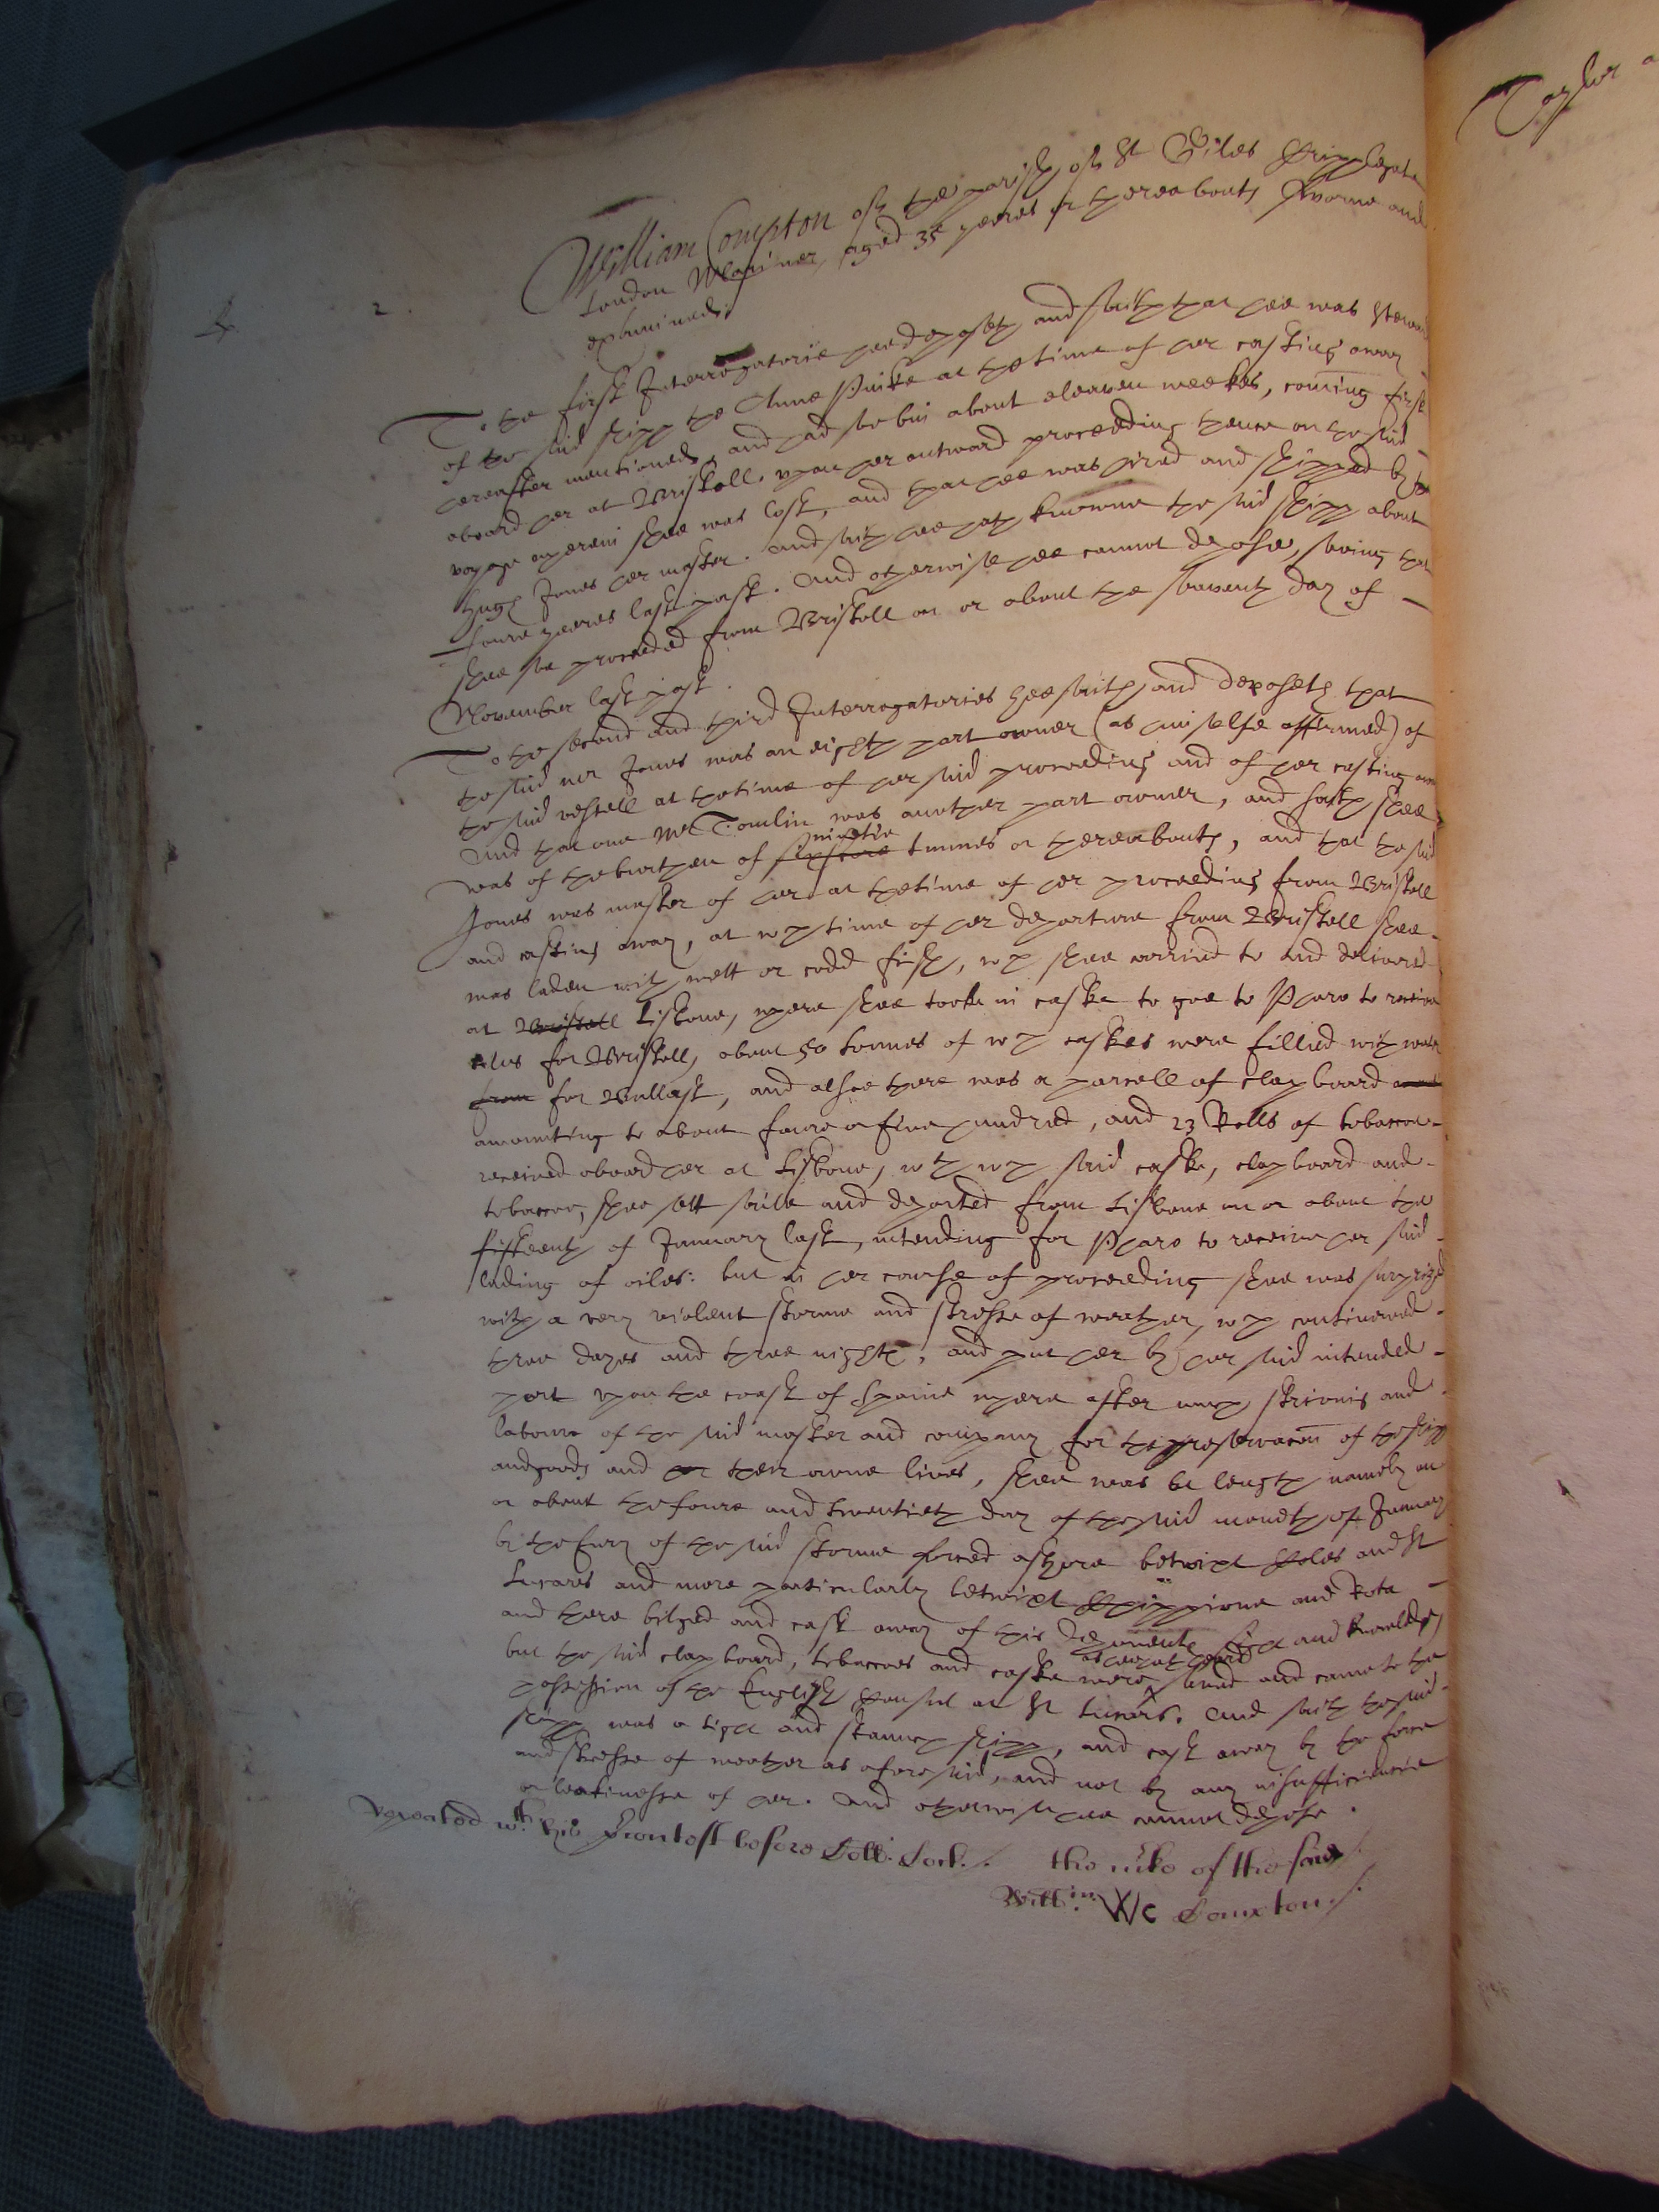 2.
William Compton of the parish of St Giles Cripplegate
London Mariner, aged 35 yeeres or thereabouts sworne and
examined.
To the first Interrogatorie hee deposeth and saith that hee was Steward
of the said shipp the Anne at the time of her casting away
hereafter mentioned, and had so bin about eleaven weekes, coming first
aboard her at Bristoll, upon her outward proceeding thence on the said
voyage wherein shee was lost, and that hee was hired and shipped by
Hugh Jones her master. and saith hee hath knowne the said shipp about
foure yeeres last past. And otherwise hee cannot depose, saving that
shee soe proceeded from Bristoll on or about the seaventh day of
November last past.
To the second and third Interrogatories hee saith and deposeth that
the said mr Jones was an eighth part owner (as himselfe affirmed) of
the said vessell at the time of her said proceeding and of her casting away
and that one Mr Tomlin was another part owner, and saith shee
ninetie
was of the burthen of tunnes or thereabouts, and that the said
Jones was master of her at the time of her proceeding from Bristoll
and casting away, at wch time of her departure from Bristoll shee
was laden with wett or codd fish, wch shee carried to and delivered
at Bristoll Lisbone, where shee tooke in caske to goe to Pharo to receive
oiles for Bristoll, about 50 tonnes of wch caskes were filled with water
from for Ballast, and alsoe there was a parcell of clapboard
amounting to about foure or five hundred, and 23 Rolls of tobaccoe
received aboard her at Lisbone, wth wch said caske, clapboard and
tobaccoe, shee sett saile and departed from Lisbone on or about the
fifteenth of January last, intending for Pharo to receive her said
lading of oiles: but in her course of proceeding shee was surprized
with a very violent storme and stresse of weather, wch continued
three dayes and three nights, and put her by her said intended
port upon the coast of Spaine where after much striving and
labour of the said master and company for the preservacon of the shipp
and goods and their owne lives, shee was at length namely on
or about the foure and twentieth day of the said moneth of January
by the fury of the said storme forced ashore betwixt and St
Lucars and more particularly betwixt Chippiona and Rota
and there bilged and cast away of this deponents sight and knowledge,
as hee hath heard
but the said clapboard, tobaccoes and caske were saved and came to the
possession of the English Consul at St Lucars. And saith the said
shipp was a tight and stanch shipp, and cast away by the force
and stresse of weather as aforesaid, and not by any insufficiencie
or leakinesse of her. And otherwise hee cannot depose.
Repeated wth his Contest before Coll: Cock./. the mke of the said
Willm: WC Comxton./.
Taylor